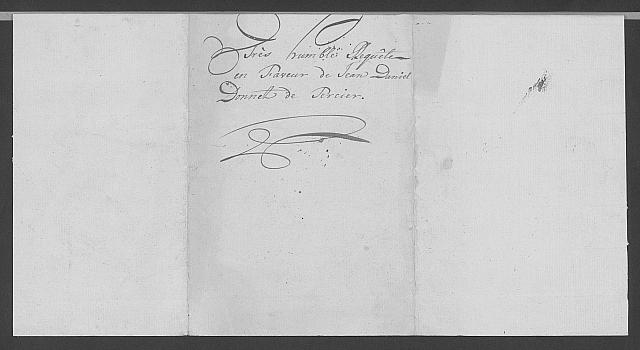 Très humble Requête
en Faveur de Jean Daniel
Donnet de Percier.